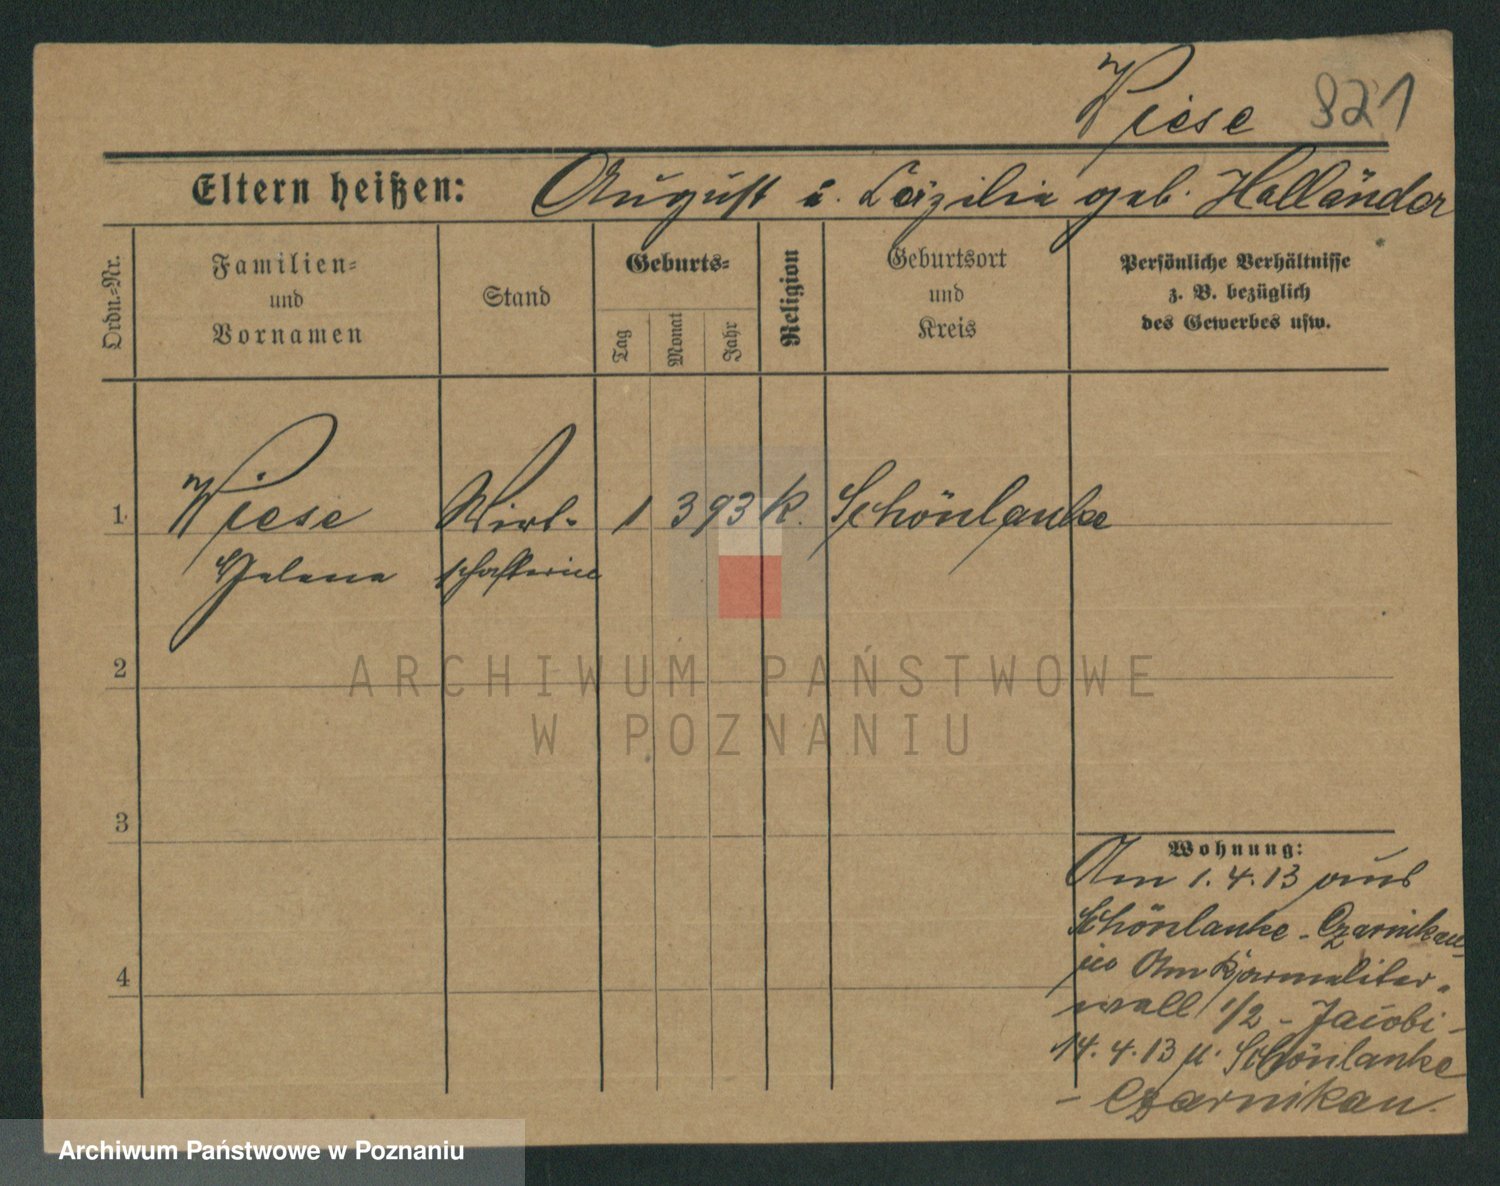 Wiese 821
Eltern heißen: August u. Cäzilie geb. Holländer
Ordn.-Nr.
Familien-
und
Vornamen
Stand
Geburts-
Tag
Monat
Jahr
Religion
Geburtsort
und
Kreis
Persönliche Verhältnisse
z. B. bezüglich
des Gewerbes usw.
1 Wiese Wirt- 1 3 93 K. Schönlanke
Helene schafterin
2
3
4
Wohnung:
Am 1.4.13 aus
Schönlanke - Czarnikau
Am Karmeliter-
wall 1/2 - Jacobi -
14.4.13 n. Schönlanke
- Czarnikau.
ARCHIWUM PAŃSTWOWE
W POZNANIU
Archiwum Państwowe w Poznaniu